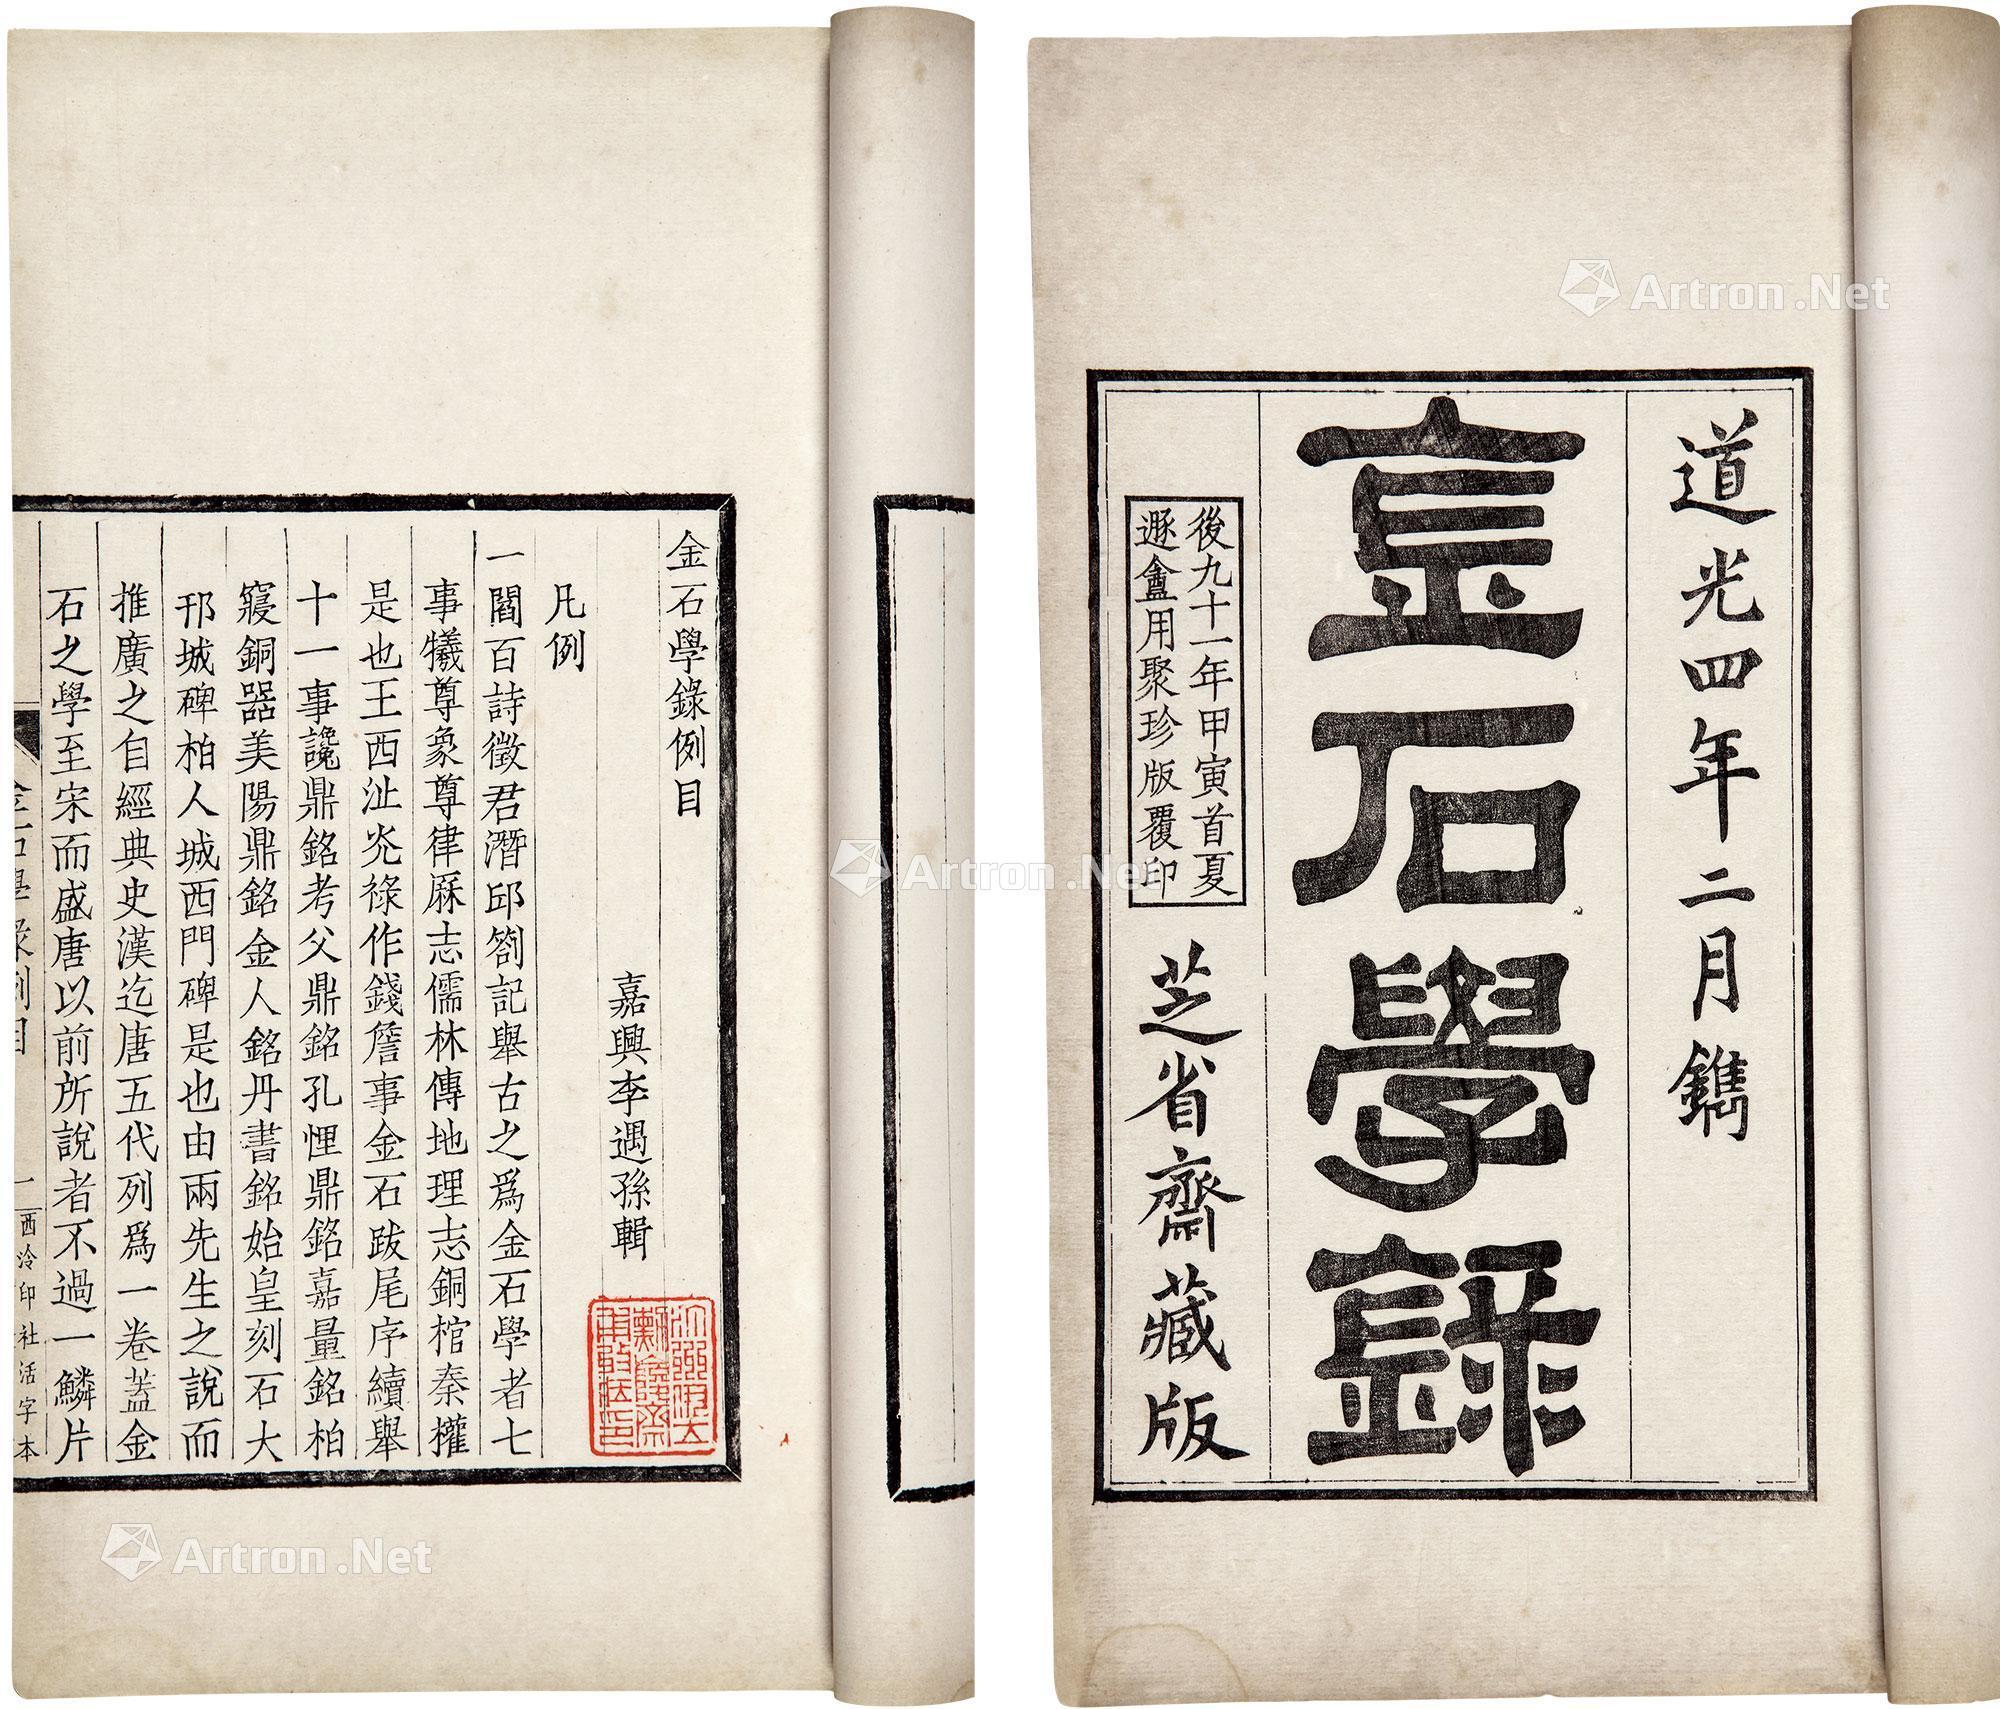 道光四年二月鐫
金石學錄
後九十一年甲寅首夏
遯盦用聚珍版覆印
芝省齋藏版
金石學錄例目
嘉興李遇孫輯
凡例
一閻百詩徵君潛邱劄記舉古之爲金石學者七
事犧尊象尊律厤志儒林傳地理志銅棺秦權
是也王西沚光祿作錢詹事金石跋尾序續舉
十一事讒鼎銘考父鼎銘孔悝鼎銘嘉量銘柏
寢銅器美陽鼎銘金人銘丹書銘始皇刻石大
邗城碑柏人城西門碑是也由兩先生之說而
推廣之自經典史漢迄唐五代列爲一卷蓋金
石之學至宋而盛唐以前所說者不過一鱗片
金石學錄例目
一
西泠印社活字本
Artron.Net
Artron.Net
Artron.Net